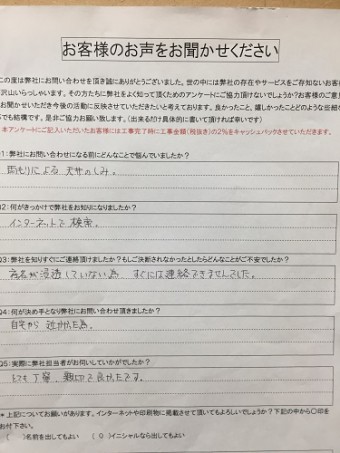 お客様のお声をお聞かせください
この度は弊社にお問い合わせを頂き誠にありがとうございます。世の中には弊社の存在やサービスをご存知ないお客様
沢山いらっしゃいます。その方たちに弊社をよく知って頂くためのアンケートにご協力頂けないでしょうか?お客様のご意見
お聞かせいただき今後の活動に反映させていただきたいと考えております。良かったこと、嬉しかったことどのような些細な
でも結構です。是非ご協力お願い致します。（出来るだけ具体的に書いて頂ければ幸いです）
本アンケートにご記入いただいたお客様には工事完了時に工事金額(税抜き)の2%をキャッシュバックさせていただきます。
Q1:弊社にお問い合わせになる前にどんなことで悩んでいましたか?
雨もりによる 天井のしみ。
Q2:何がきっかけで弊社をお知りになりましたか?
インターネットで検索。
Q3:弊社を知りすぐにご連絡頂けましたか?もしご決断されなかったとしたらどんなことがご不安でしたか?
社名が浸透していない為 すぐには連絡できませんでした。
Q4:何が決め手となり弊社にお問い合わせ頂きましたか?
自宅から 近かった為。
Q5:実際に弊社担当者がお伺いしていかがでしたか?
とても丁寧、親切で良かったです。
*上記についてお願いがあります。インターネットや印刷物に掲載させて頂いてもよろしいでしょうか?下記の中から○印を
お付下さい。
(　)名前を出してもよい （○）イニシャルなら出してもよい